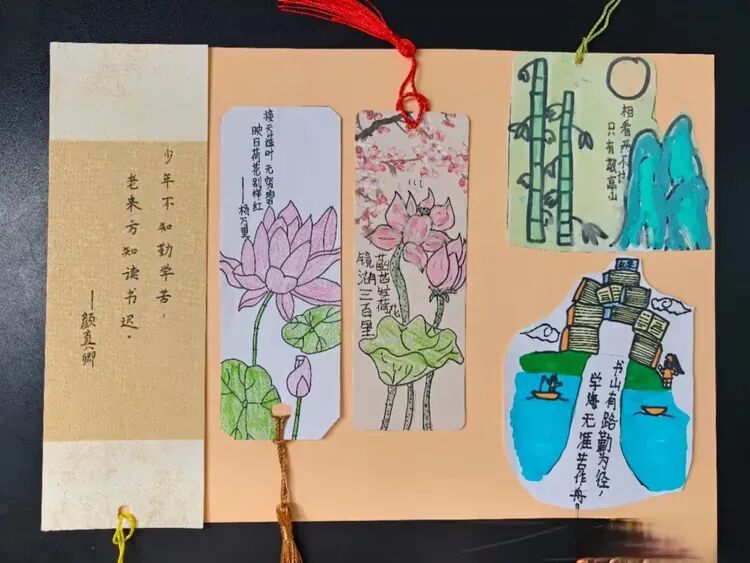 少年不知勤学苦，
老来方知读书迟。
——颜真卿
接天莲叶无穷碧
映日荷花别样红
——杨万里
镜湖三百里
菡萏发荷花
相看两不
只有山
书山有路勤为径，
学海无涯苦作舟。